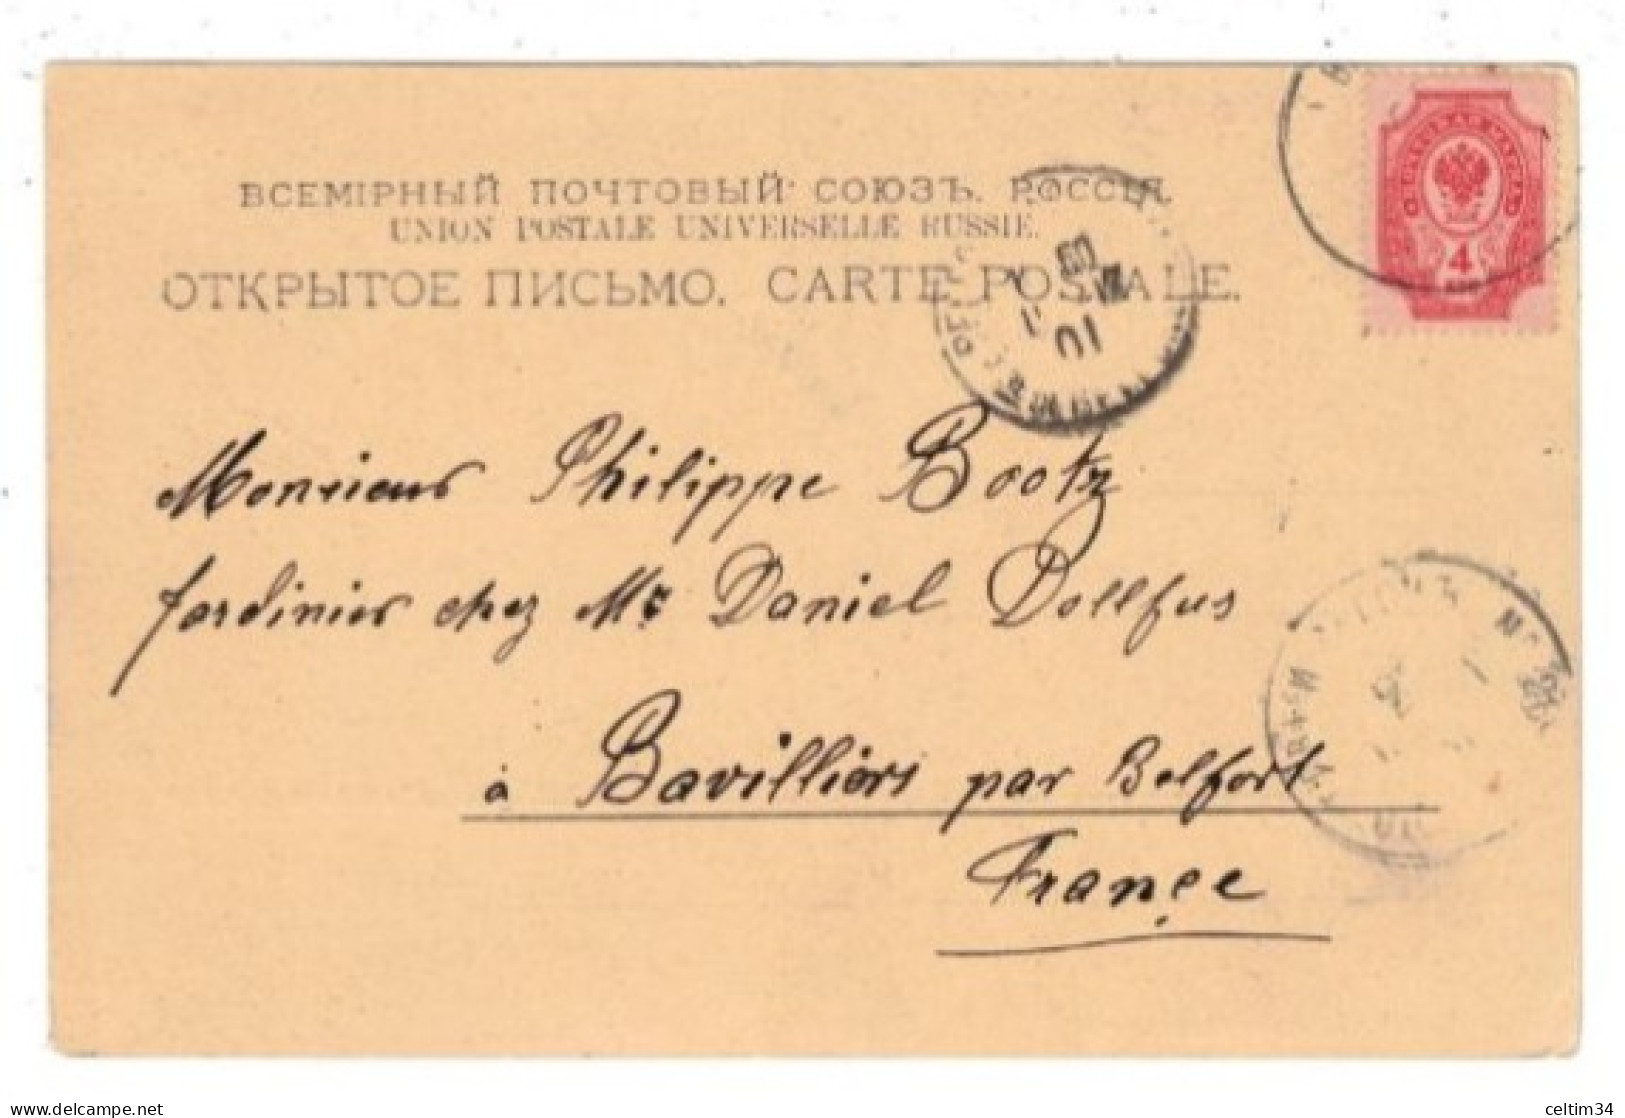 ВСЕМІРНЫЙ ПОЧТОВЫЙ СОЮЗЪ. РОССІЯ.
UNION POSTALE UNIVERSELLE RUSSIE.
ОТКРЫТОЕ ПИСЬМО. CARTE POSTALE.
4
10
Monsieur Philippe Bootz
Jardinier chez Mr Daniel Dollfus
à Bavilliers par Belfort
France
delcampe.net
celtim34